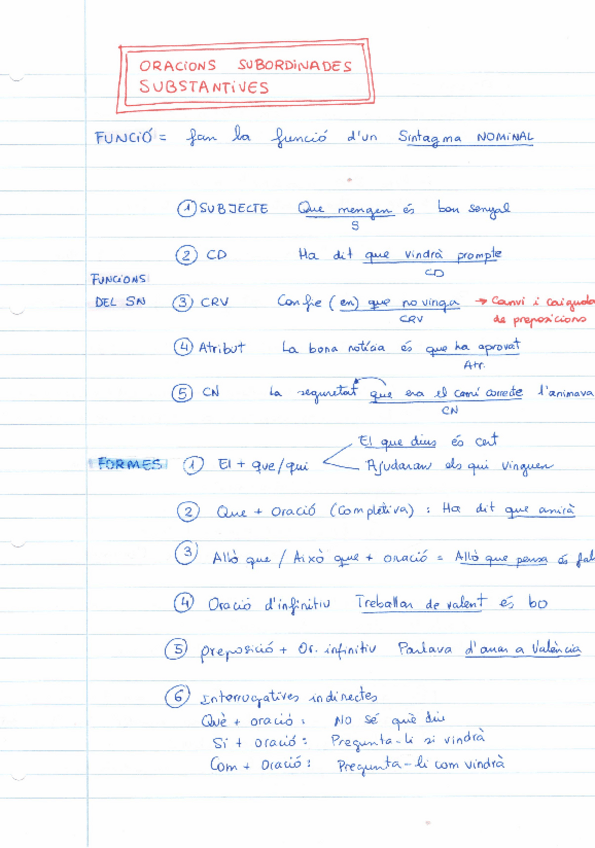 ORACIONS SUBORDINADES
SUBSTANTIVES
FUNCIÓ = fan la funció d'un Sintagma NOMINAL
① SUBJECTE Que mengen és bon senyal
S
② CD Ha dit que vindrà prompte
CD
FUNCIONS
DEL SN ③ CRV Confie (en) que no vinga → Canvi i caiguda
CRV de preposicions
④ Atribut La bona notícia és que ha aprovat
Atr.
⑤ CN La seguretat que era el camí correcte l'animava
CN
El que dius és cert
FORMES ① El + que/qui
Ajudaran els qui vinguen
② Que + oració (Completiva) : Ha dit que anirà
③ Allò que / Això que + oració = Allò que pensa és fal
④ Oració d'infinitiu Treballar de valent és bo
⑤ preposició + Or. infinitiu Parlava d'anar a València
⑥ Interrogatives indirectes
Què + oració : No sé què diu
Si + oració : Pregunta-li si vindrà
Com + oració : Pregunta-li com vindrà